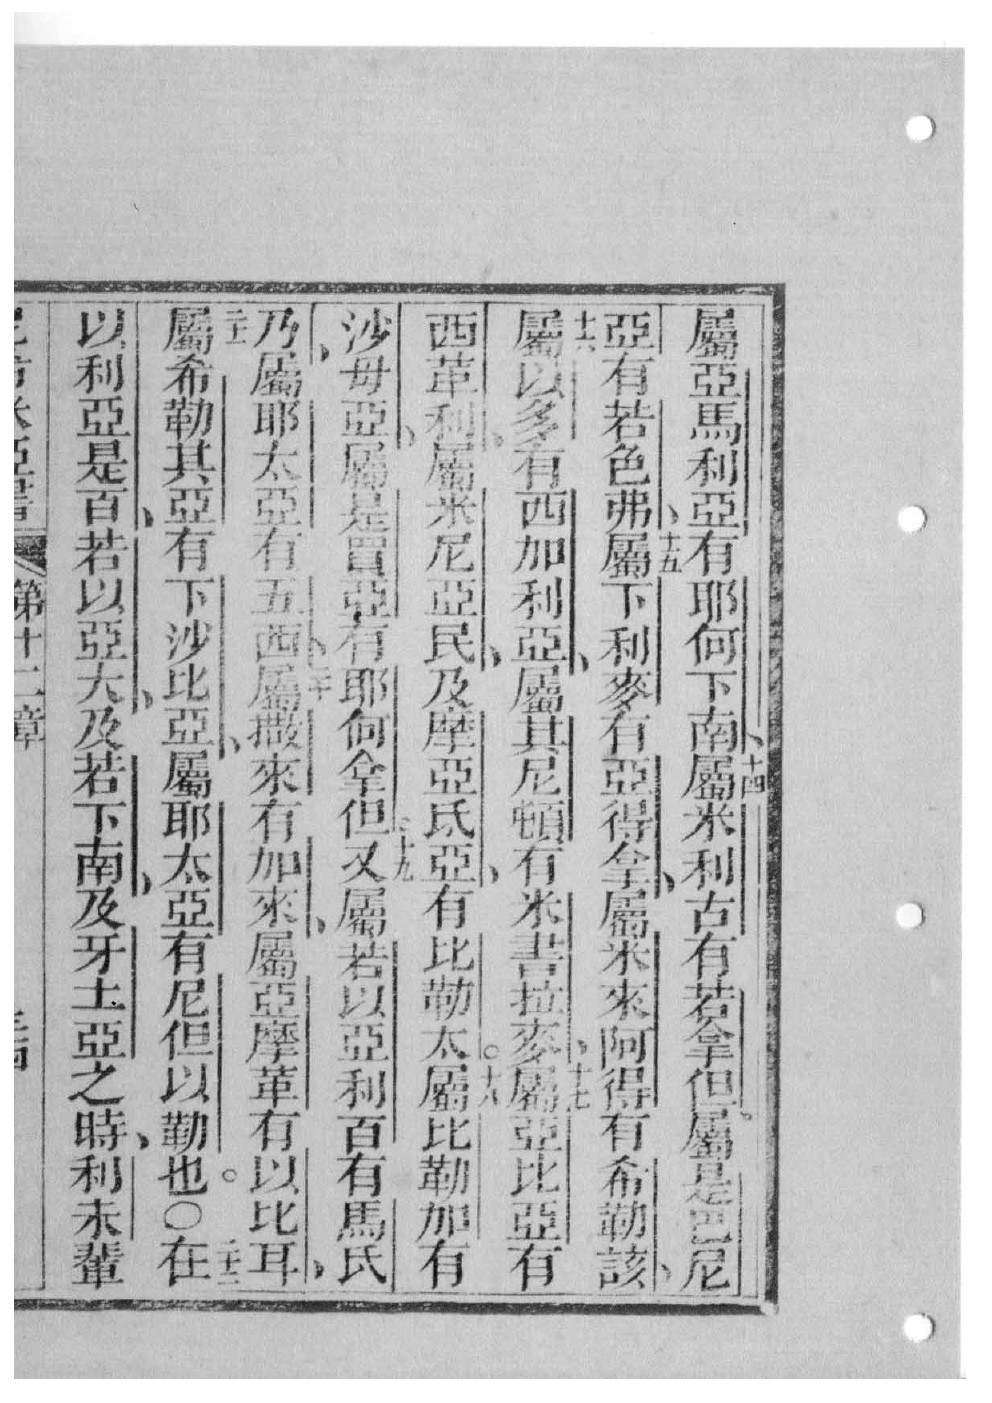 屬亞馬利亞有耶何下南、十四屬米利古有若拿但。屬是巴尼
亞有若色弗、十五屬下利麥有亞得拿、屬米來阿得有希勒該、
十六屬以多有西加利亞、屬其尼頓有米書拉麥、十七屬亞比亞有
西革利、屬米尼亞民、及摩亞氐亞、有比勒太。十八屬比勒加有
沙毋亞、屬是買亞有耶何拿但。十九又屬若以亞利百有馬氏
乃、屬耶太亞有五西、二十屬撒來有加來、屬亞摩革有以比耳、
二十一屬希勒其亞有下沙比亞、屬耶太亞有尼但以勒也。○二十二在
以利亞是百、若以亞大、及若下南、及牙土亞之時、利未輩
第十二章